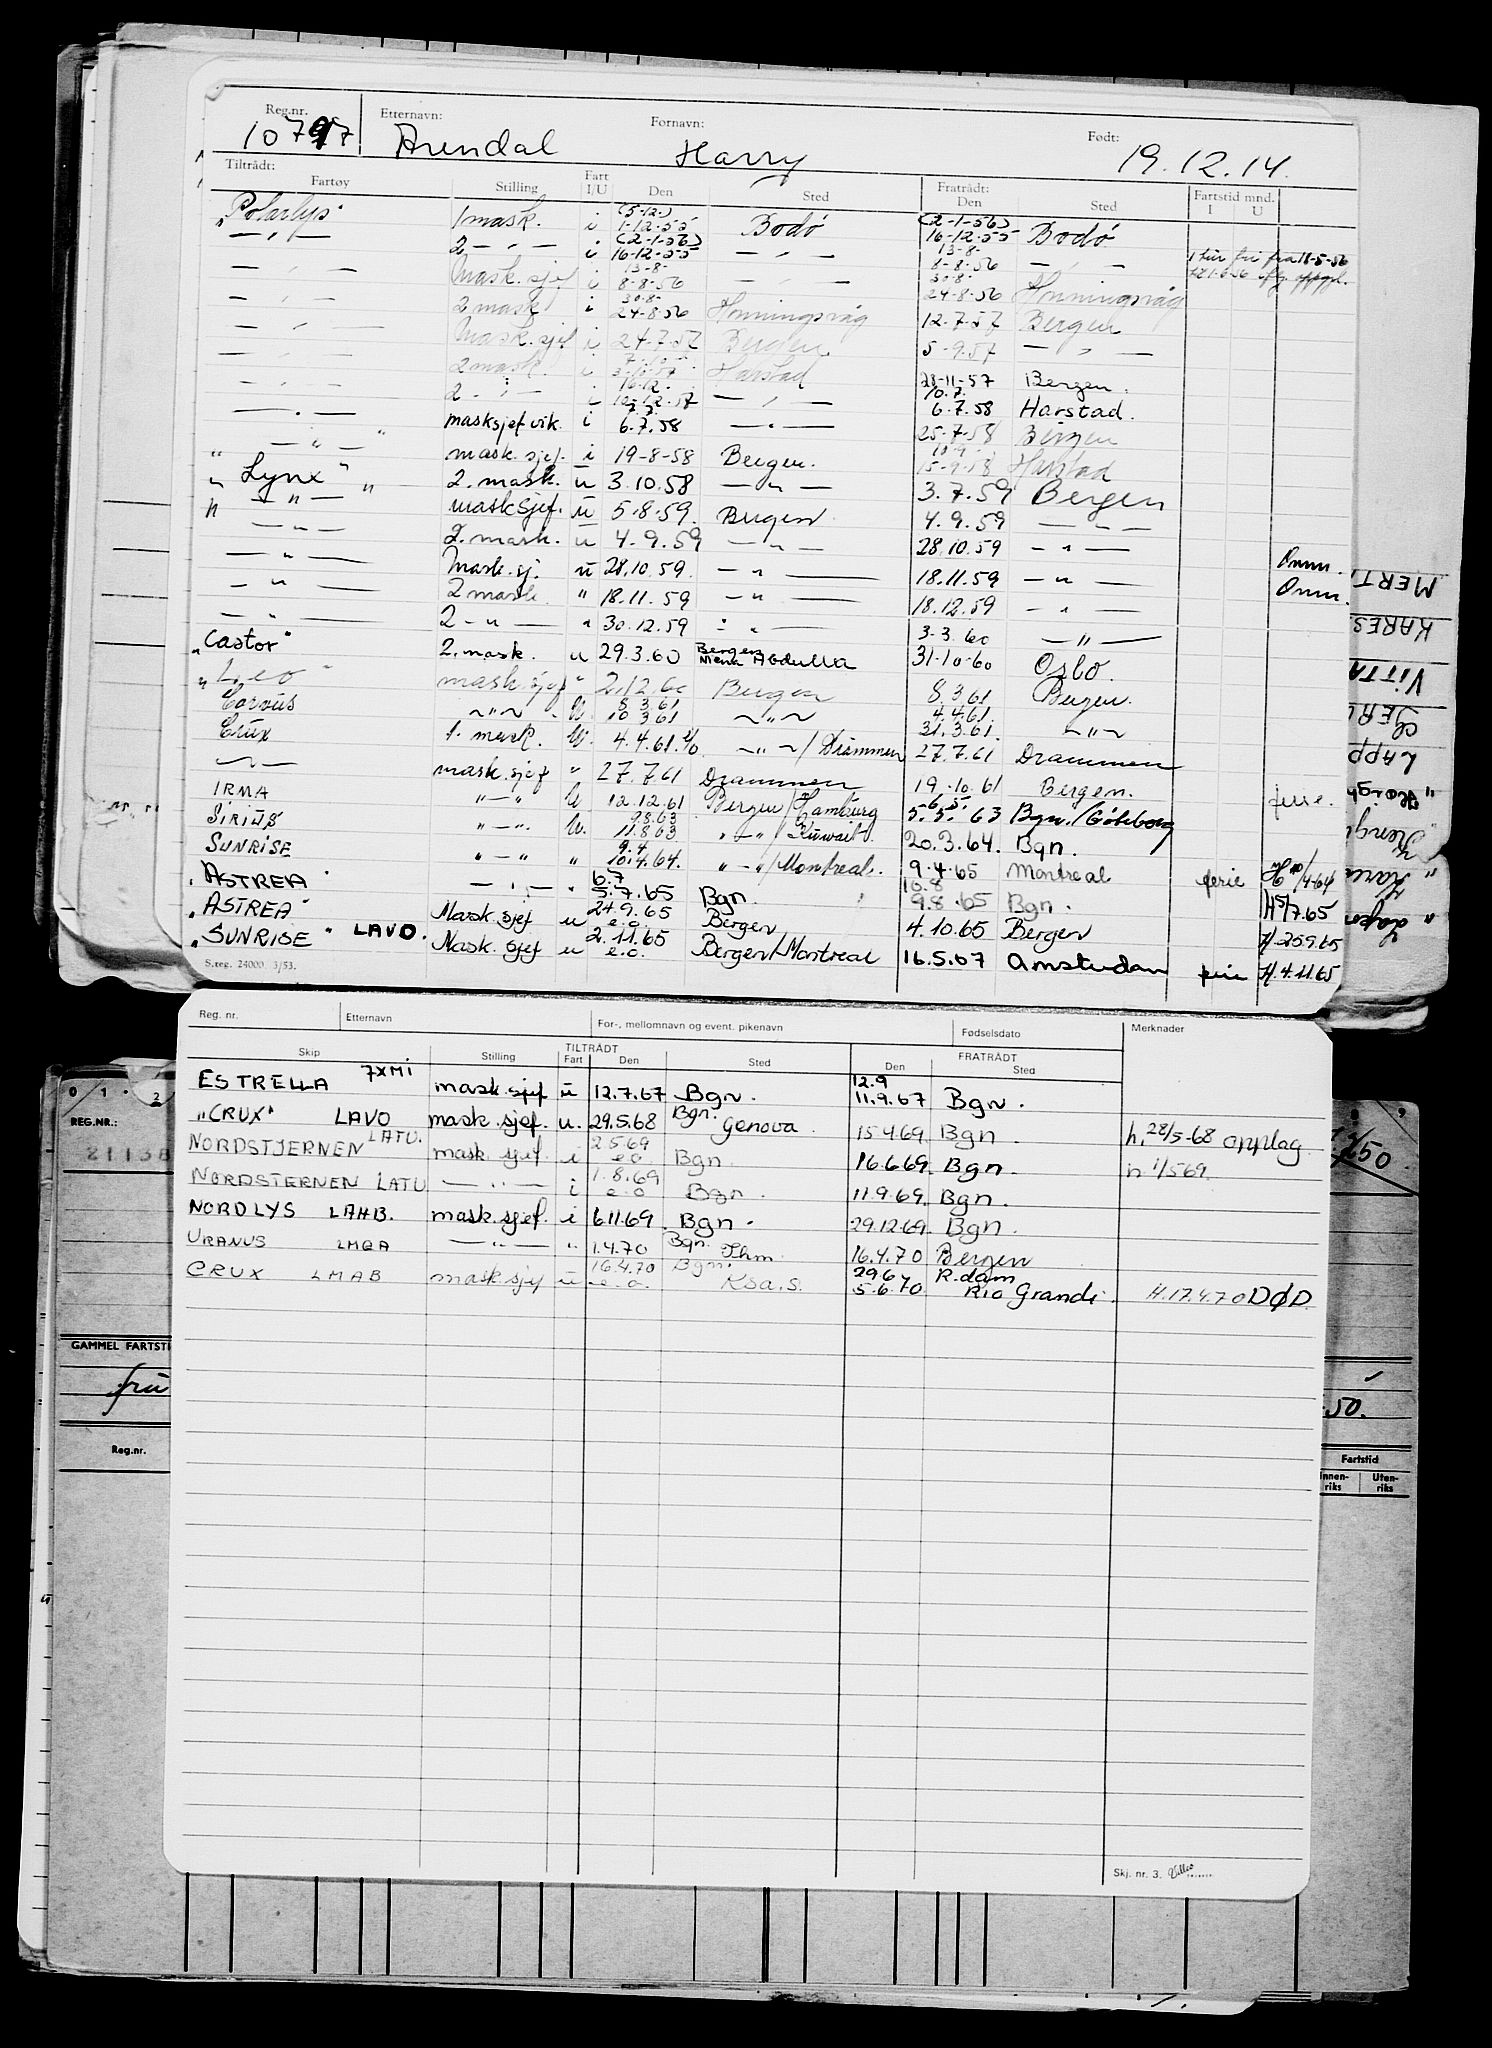 Reg.nr. Etternavn: Fornavn: Født:
10797 Arendal Harry 19.12.14.
Tiltrådt: Fratrådt:
Fartøy Stilling Fart I/U Den Sted Den Sted Fartstid mnd. I U
"Polarlys" 1 mask. i (5-12-) 1-12-55 Bodö (2-1-56) 16-12-55 Bodö
— " — 2 — " — i (2-1-56) 16-12-55 — " — 13-8- 8-8-56 — " — 1 tür fri fra 18-5-56
— " — Mask.sjef i 13-8- 8-8-56 — " — 30-8- 24-8-56 Honningsvåg
— " — 2 mask i 30-8- 24-8-56 Honningsvåg 12.7.57 Bergen
— " — Mask.sjef i 24-7-57 Bergen 5-9-57 — " —
— " — 2 mask. i Harstad 28-11-57 Bergen.
— " — 2 - " — i 16-12- 10-12-57 — " — 10.7. 6.7.58 Harstad.
— " — masksjef vik. i 7.7. 6.7.58 — " — 25-7-58 Bergen
" — " — " mask. sjef. i 19-8-58 Bergen. 15-9-58 Harstad
" Lynx " 2. mask. u 3.10.58 — " — 3.7.59 Bergen
" — " — " mask sjef. u 5.8.59. Bergen 4.9.59 — " —
— " — 2. mask. u 4.9.59 — " — 28.10.59 — " —
— " — Mask.sj. u 28.10.59. — " — 18.11.59 — " — Omm.
— " — 2 mask. " 18.11.59 — " — 18.12.59 — " — Omm.
— " — 2 — " — " 30.12.59 — " — 3.3.60 — " —
"Castor" 2. mask. u 29.3.60 Bergen Mena Abdulla 31-10-60 Oslo.
"Leo" mask.sjef " 2.12.60 Bergen 8.3.61 Bergen.
Corvus — " — U. 8.3.61 10.3.61 — " — 4.4.61. 31.3.61. — " —
Crux 1. mask. U. 4.4.61. — " — / Drammen 27.7.61 Drammen
— " — mask.sjef " 27.7.61 Drammen 19.10.61 Bergen.
IRMA — " — U 12.12.61 Bergen/Hamburg 6.5. 5.5.63 Bgn./Göteborg ferie.
SIRIUS — " — U. 9.8.63 11.8.63 — " — / Kuwait 20.3.64. Bgn.
SUNRISE — " — " 9.4 10.4.64. — " — / Montreal. 9.4.65 Montreal ferie
"ASTREA" — " — " 6.7 5.7.65 Bgn. 10.8 9.8.65 Bgn. H 5/7.65
"ASTREA" Mask.sjef u 24.9.65 e.o. Bergen 4.10.65 Bergen H.25.9.65
"SUNRISE" LAVO. Mask.sjef u 2.11.65 e.o. Bergen/Montreal 16.5.67 Amsterdam ferie H.4.11.65
S.reg. 24000. 3/53.
MERT
KARES
VITTA
LAPP
Reg. nr. Etternavn For-, mellomnavn og event. pikenavn Fødselsdato Merknader
TILTRÅDT FRATRÅDT
Skip Stilling Fart Den Sted Den Sted
ESTRELLA 7XMI mask sjef u 12.7.67 Bgn. 12.9 11.9.67 Bgn.
"CRUX" LAVO mask.sjef. u. 29.5.68 Bgn. Genova 15.4.69. Bgn. h, 28/5-68 opplag
NORDSTJERNEN LATU. mask.sjef. i 2.5.69 e.o Bgn. 16.6.69. Bgn. h 1/5 69.
NORDSTERNEN LATU — " — i 1.8.69 e.o Bgn. 11.9.69. Bgn.
NORDLYS LAHB. mask.sjef. i 6.11.69. Bgn. 29.12.69. Bgn.
URANUS LMQA — " — " 1.4.70 Bgn. Thm. 16.4.70 Bergen
CRUX LMAB mask sjef u 16.4.70 e.o. Bgn. Ksa.S. 29.6 5.6.70. R.dam Rio Grande. H.17.4.70 DØD.
Skj. nr. 3.
0 1 2
REG.NR.:
21138
GAMMEL FARTSTI
fru
Reg.nr.
50.
Fartstid
Innen- riks Uten- riks